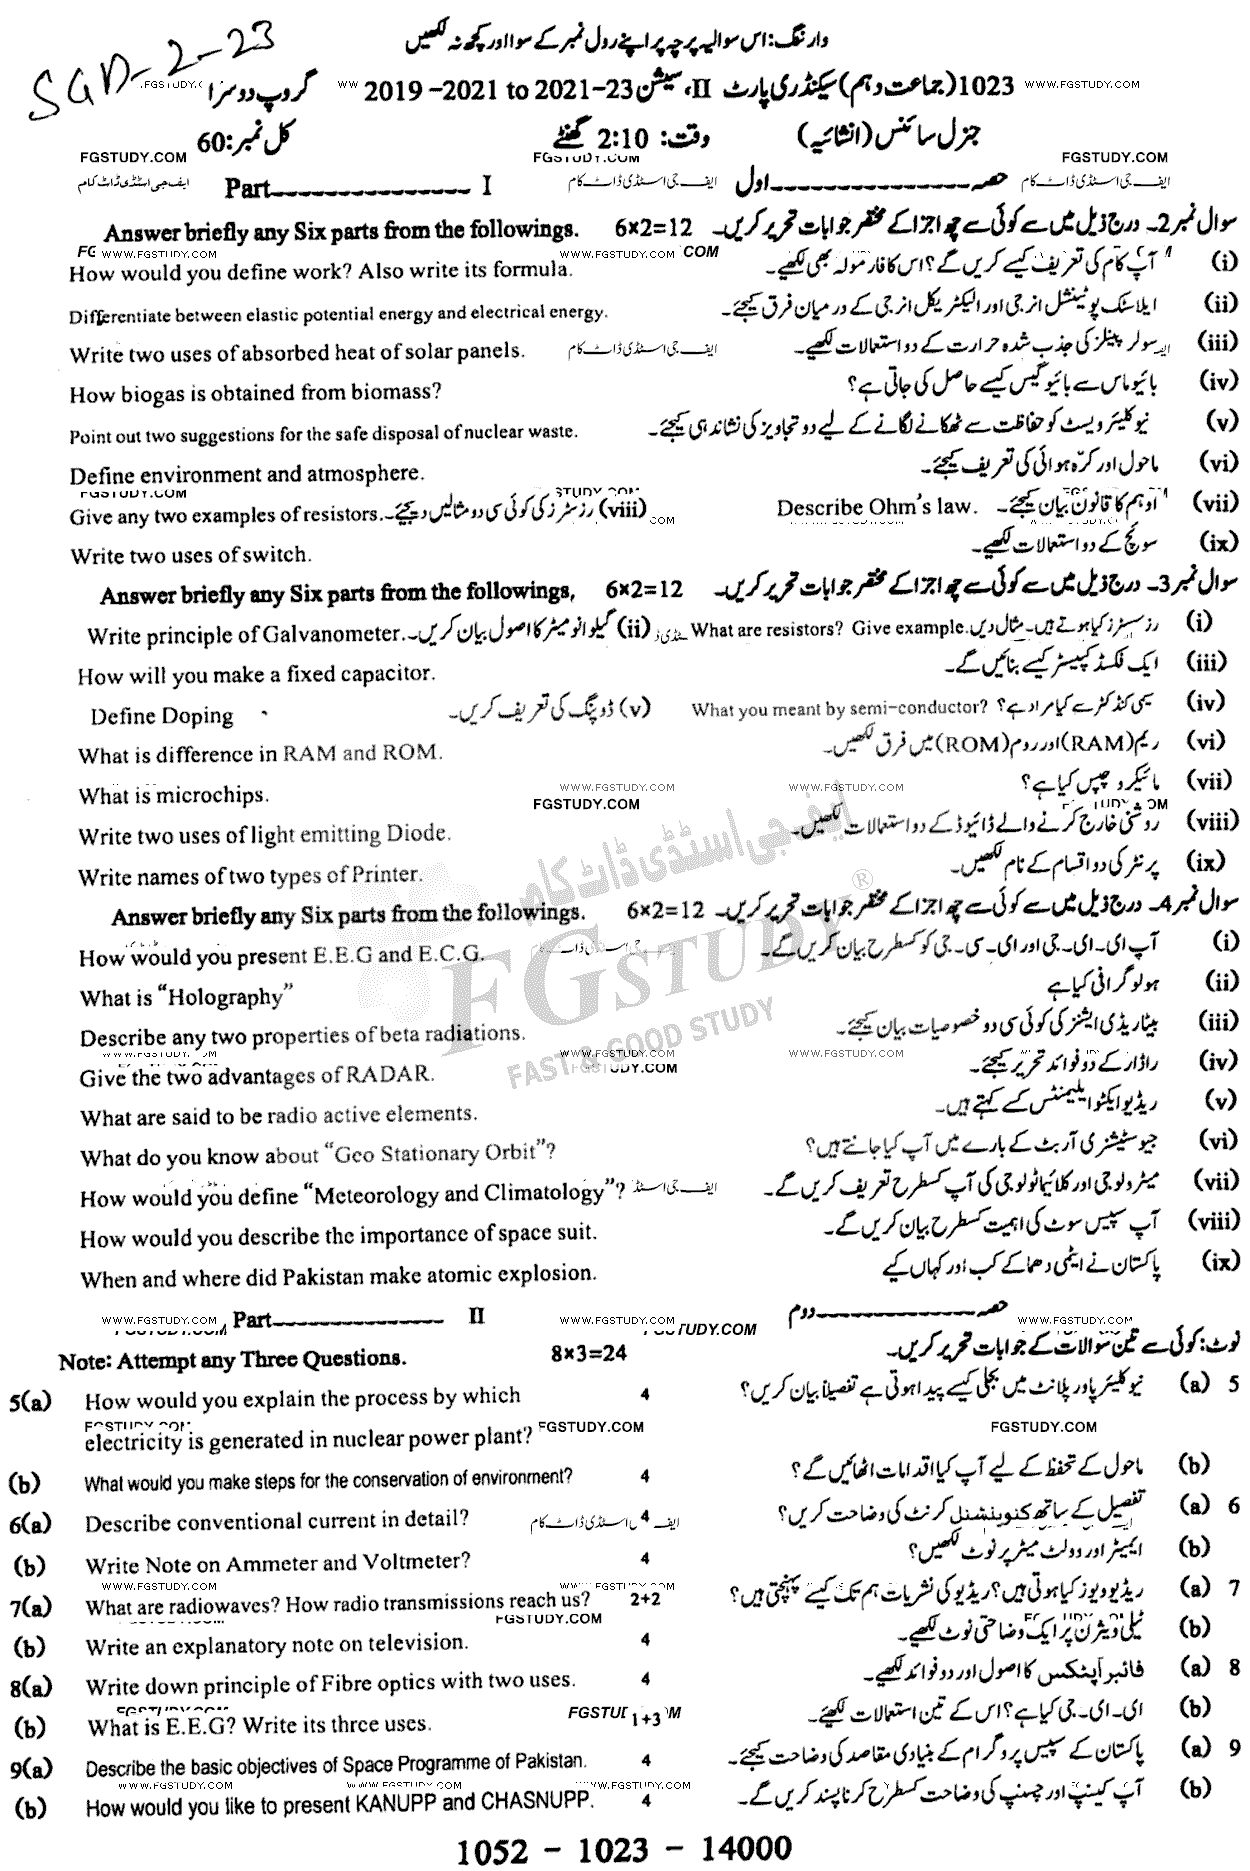 وارننگ: اس سوالیہ پرچہ پر اپنے رول نمبر کے سوا اور کچھ نہ لکھیں
SGD-2-23
1023 (جماعت دہم) سیکنڈری پارٹ II، سیشن 2019-2021 to 2021-23 گروپ دوسرا
جنرل سائنس (انشائیہ) وقت: 2:10 گھنٹے کل نمبر: 60
FGSTUDY.COM FGSTUDY.COM FGSTUDY.COM
حصہ اول Part I
سوال نمبر 2۔ درج ذیل میں سے کوئی سے چھ اجزا کے مختصر جوابات تحریر کریں۔ 6×2=12 Answer briefly any Six parts from the followings.
(i) آپ کام کی تعریف کیسے کریں گے؟ اس کا فارمولہ بھی لکھیے۔ How would you define work? Also write its formula.
(ii) ایلاسٹک پوٹینشل انرجی اور الیکٹریکل انرجی کے درمیان فرق کیجئے۔ Differentiate between elastic potential energy and electrical energy.
(iii) سولر پینلز کی جذب شدہ حرارت کے دو استعمالات لکھیے۔ Write two uses of absorbed heat of solar panels.
(iv) بائیو ماس سے بائیو گیس کیسے حاصل کی جاتی ہے؟ How biogas is obtained from biomass?
(v) نیوکلیئر ویسٹ کو حفاظت سے ٹھکانے لگانے کے لیے دو تجاویز کی نشاندہی کیجئے۔ Point out two suggestions for the safe disposal of nuclear waste.
(vi) ماحول اور کرّہ ہوائی کی تعریف کیجئے۔ Define environment and atmosphere.
(vii) اوہم کا قانون بیان کیجئے۔ Describe Ohm's law. (viii) رزسٹرز کی کوئی سی دو مثالیں دیجئے۔ Give any two examples of resistors.
(ix) سوئچ کے دو استعمالات لکھیے۔ Write two uses of switch.
سوال نمبر 3۔ درج ذیل میں سے کوئی سے چھ اجزا کے مختصر جوابات تحریر کریں۔ 6×2=12 Answer briefly any Six parts from the followings,
(i) رزسٹرز کیا ہوتے ہیں۔ مثال دیں۔ What are resistors? Give example. (ii) گیلوانومیٹر کا اصول بیان کریں۔ Write principle of Galvanometer.
(iii) ایک فکسڈ کپیسٹر کیسے بنائیں گے۔ How will you make a fixed capacitor.
(iv) سیمی کنڈکٹر سے کیا مراد ہے؟ What you meant by semi-conductor? (v) ڈوپنگ کی تعریف کریں۔ Define Doping
(vi) ریم (RAM) اور روم (ROM) میں فرق لکھیں۔ What is difference in RAM and ROM.
(vii) مائیکرو چپس کیا ہے؟ What is microchips.
(viii) روشنی خارج کرنے والے ڈائیوڈ کے دو استعمالات لکھیں۔ Write two uses of light emitting Diode.
(ix) پرنٹر کی دو اقسام کے نام لکھیں۔ Write names of two types of Printer.
سوال نمبر 4۔ درج ذیل میں سے کوئی سے چھ اجزا کے مختصر جوابات تحریر کریں۔ 6×2=12 Answer briefly any Six parts from the followings.
(i) آپ ای۔ای۔جی اور ای۔سی۔جی کو کسطرح بیان کریں گے۔ How would you present E.E.G and E.C.G.
(ii) ہولوگرافی کیا ہے What is "Holography"
(iii) بیٹا ریڈی ایشنز کی کوئی سی دو خصوصیات بیان کیجئے۔ Describe any two properties of beta radiations.
(iv) راڈار کے دو فوائد تحریر کیجئے۔ Give the two advantages of RADAR.
(v) ریڈیو ایکٹو ایلیمنٹس کسے کہتے ہیں۔ What are said to be radio active elements.
(vi) جیو سٹیشنری آربٹ کے بارے میں آپ کیا جانتے ہیں؟ What do you know about "Geo Stationary Orbit"?
(vii) میٹرولوجی اور کلائیماٹولوجی کی آپ کسطرح تعریف کریں گے۔ How would you define "Meteorology and Climatology"?
(viii) آپ سپیس سوٹ کی اہمیت کسطرح بیان کریں گے۔ How would you describe the importance of space suit.
(ix) پاکستان نے ایٹمی دھماکے کب اور کہاں کیے When and where did Pakistan make atomic explosion.
حصہ دوم Part II
نوٹ: کوئی سے تین سوالات کے جوابات تحریر کریں۔ 8×3=24 Note: Attempt any Three Questions.
5 (a) نیوکلیئر پاور پلانٹ میں بجلی کیسے پیدا ہوتی ہے تفصیلاً بیان کریں؟ 4 5(a) How would you explain the process by which
electricity is generated in nuclear power plant?
(b) ماحول کے تحفظ کے لیے آپ کیا اقدامات اٹھائیں گے؟ 4 (b) What would you make steps for the conservation of environment?
6 (a) تفصیل کے ساتھ کنوینشنل کرنٹ کی وضاحت کریں؟ 4 6(a) Describe conventional current in detail?
(b) ایمیٹر اور وولٹ میٹر پر نوٹ لکھیں؟ 4 (b) Write Note on Ammeter and Voltmeter?
7 (a) ریڈیو ویوز کیا ہوتی ہیں؟ ریڈیو کی نشریات ہم تک کیسے پہنچتی ہیں؟ 2+2 7(a) What are radiowaves? How radio transmissions reach us?
(b) ٹیلی ویژن پر ایک وضاحتی نوٹ لکھیے۔ 4 (b) Write an explanatory note on television.
8 (a) فائبر آپٹکس کا اصول اور دو فوائد لکھیے۔ 4 8(a) Write down principle of Fibre optics with two uses.
(b) ای۔ای۔جی کیا ہے؟ اس کے تین استعمالات لکھیئے۔ 1+3 (b) What is E.E.G? Write its three uses.
9 (a) پاکستان کے سپیس پروگرام کے بنیادی مقاصد کی وضاحت کیجئے۔ 4 9(a) Describe the basic objectives of Space Programme of Pakistan.
(b) آپ کینپ اور چسنپ کی وضاحت کسطرح کرنا پسند کریں گے۔ 4 (b) How would you like to present KANUPP and CHASNUPP.
1052 - 1023 - 14000
ایف جی اسٹڈی ڈاٹ کام
FGSTUDY®
FAST & GOOD STUDY